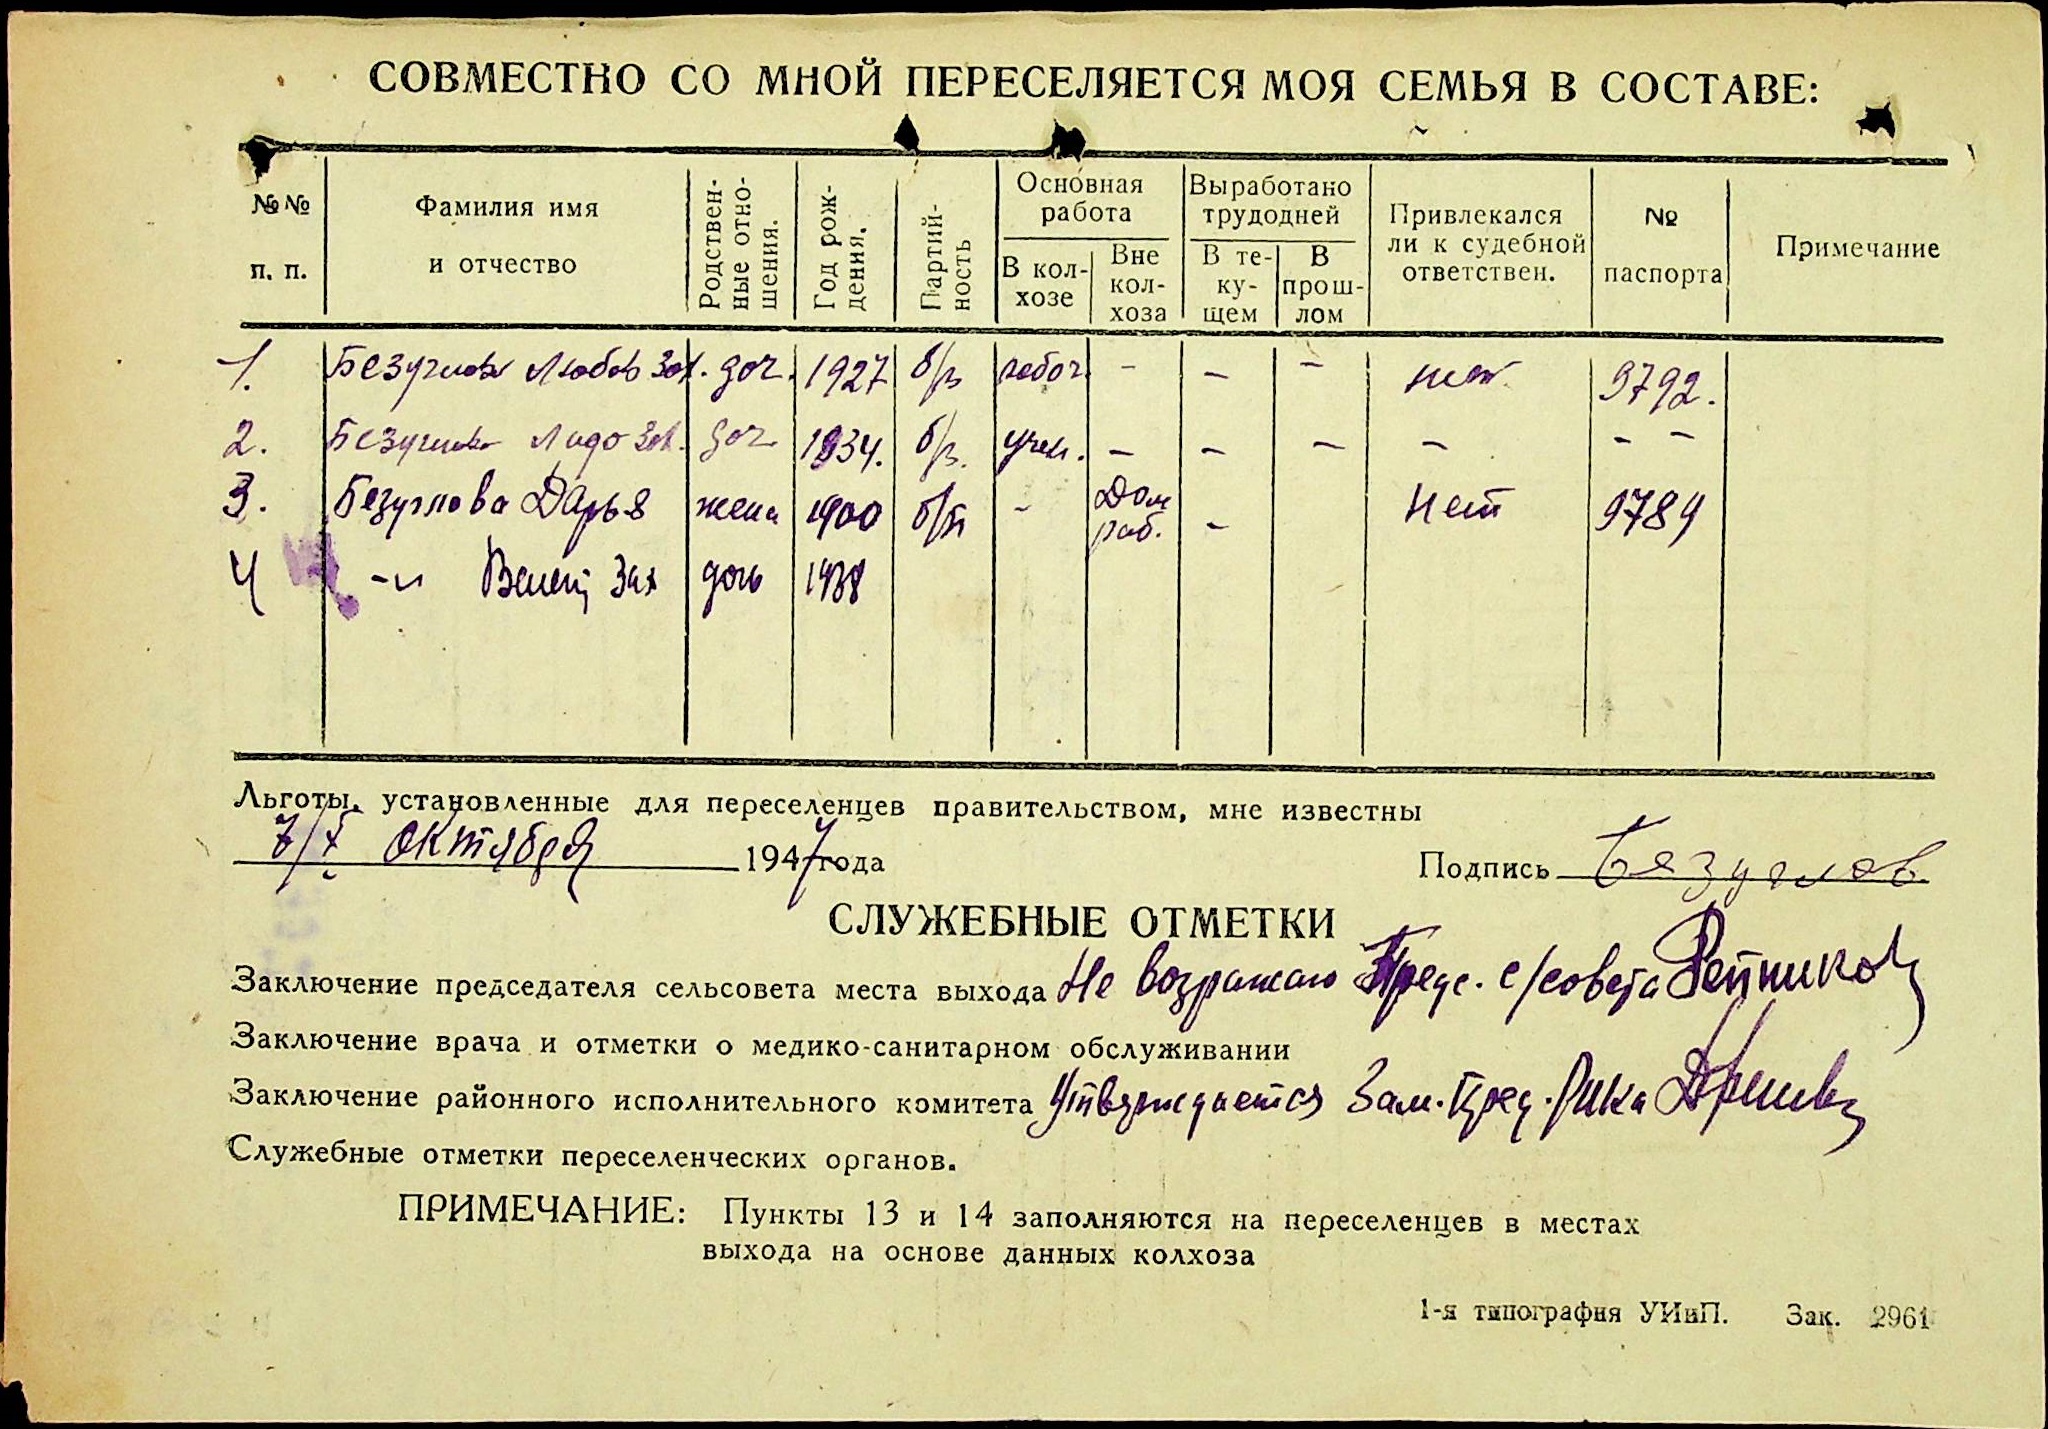 СОВМЕСТНО СО МНОЙ ПЕРЕСЕЛЯЕТСЯ МОЯ СЕМЬЯ В СОСТАВЕ:
№№ п. п. Фамилия имя и отчество Родственные отношения. Год рождения. Партийность Основная работа В колхозе Вне колхоза Выработано трудодней В текущем В прошлом Привлекался ли к судебной ответствен. № паспорта Примечание
1. Безуглова Любовь Зах. доч. 1927 б/п работ. - - - нет. 9792.
2. Безуглова Лида Зах. доч. 1934. б/п. учен. - - - - - -
3. Безуглова Дарья жена 1900 б/п - Дом раб. - Нет 9789
4 -"- Зах дочь 1938
Льготы, установленные для переселенцев правительством, мне известны
7/X октября 1947 года Подпись Безуглов
СЛУЖЕБНЫЕ ОТМЕТКИ
Заключение председателя сельсовета места выхода Не возражаю Предс. с/совета
Заключение врача и отметки о медико-санитарном обслуживании
Заключение районного исполнительного комитета Утверждается Зам. Пред. Рика
Служебные отметки переселенческих органов.
ПРИМЕЧАНИЕ: Пункты 13 и 14 заполняются на переселенцев в местах
выхода на основе данных колхоза
1-я типография УИиП. Зак. 2961